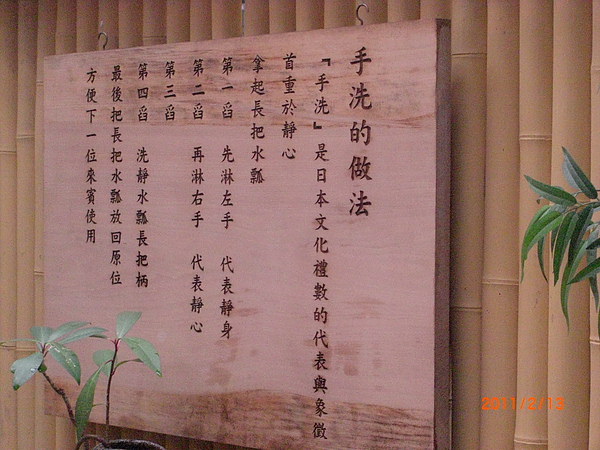 手洗的做法
『手洗』是日本文化禮數的代表與象徵
首重於靜心
拿起長把水瓢
第一舀 先淋左手 代表靜身
第二舀 再淋右手 代表靜心
第三舀
第四舀 洗靜水瓢長把柄
最後把長把水瓢放回原位
方便下一位來賓使用
2011/2/13